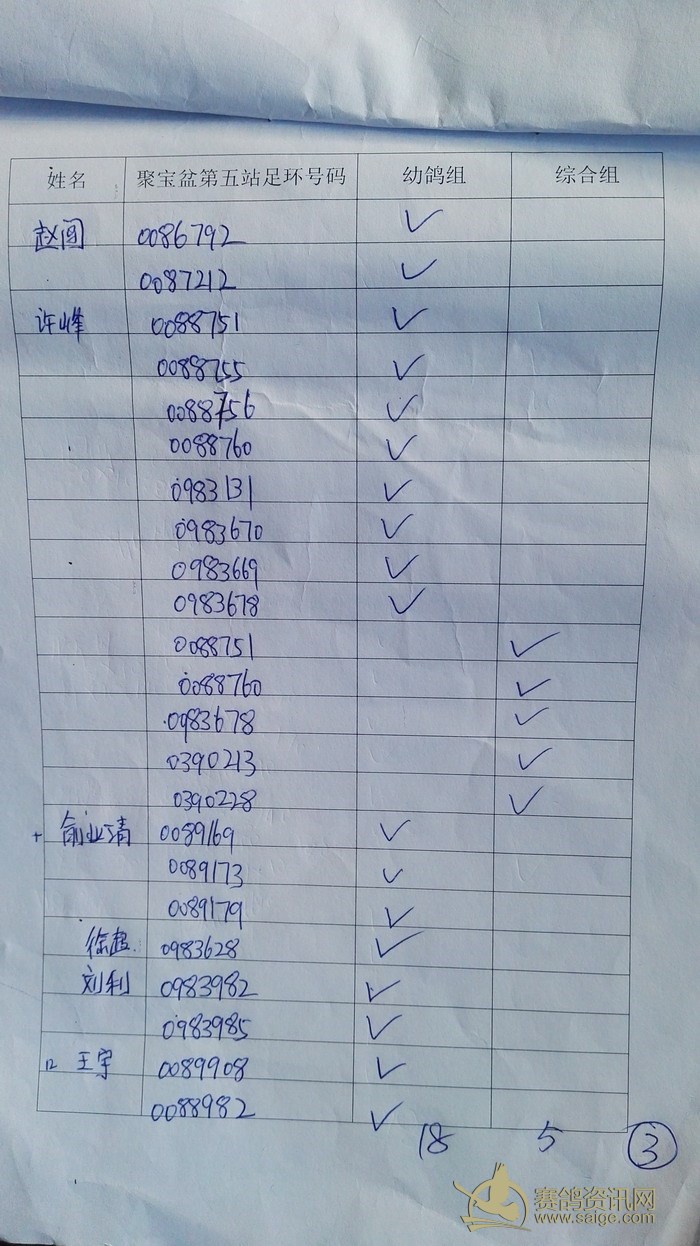 姓名 聚宝盆第五站足环号码 幼鸽组 综合组
赵阔 0086792 ✓
0087212 ✓
许峰 0088751 ✓
0088755 ✓
0088756 ✓
0088760 ✓
0983131 ✓
0983670 ✓
0983669 ✓
0983678 ✓
0088751 ✓
0088760 ✓
0983678 ✓
0390213 ✓
0390228 ✓
+ 俞业清 0089169 ✓
0089173 ✓
0089179 ✓
徐超 0983628 ✓
刘利 0983982 ✓
0983985 ✓
12 王宇 0089908 ✓
0088982 ✓
18 5 ③
赛鸽资讯网
www.saige.com